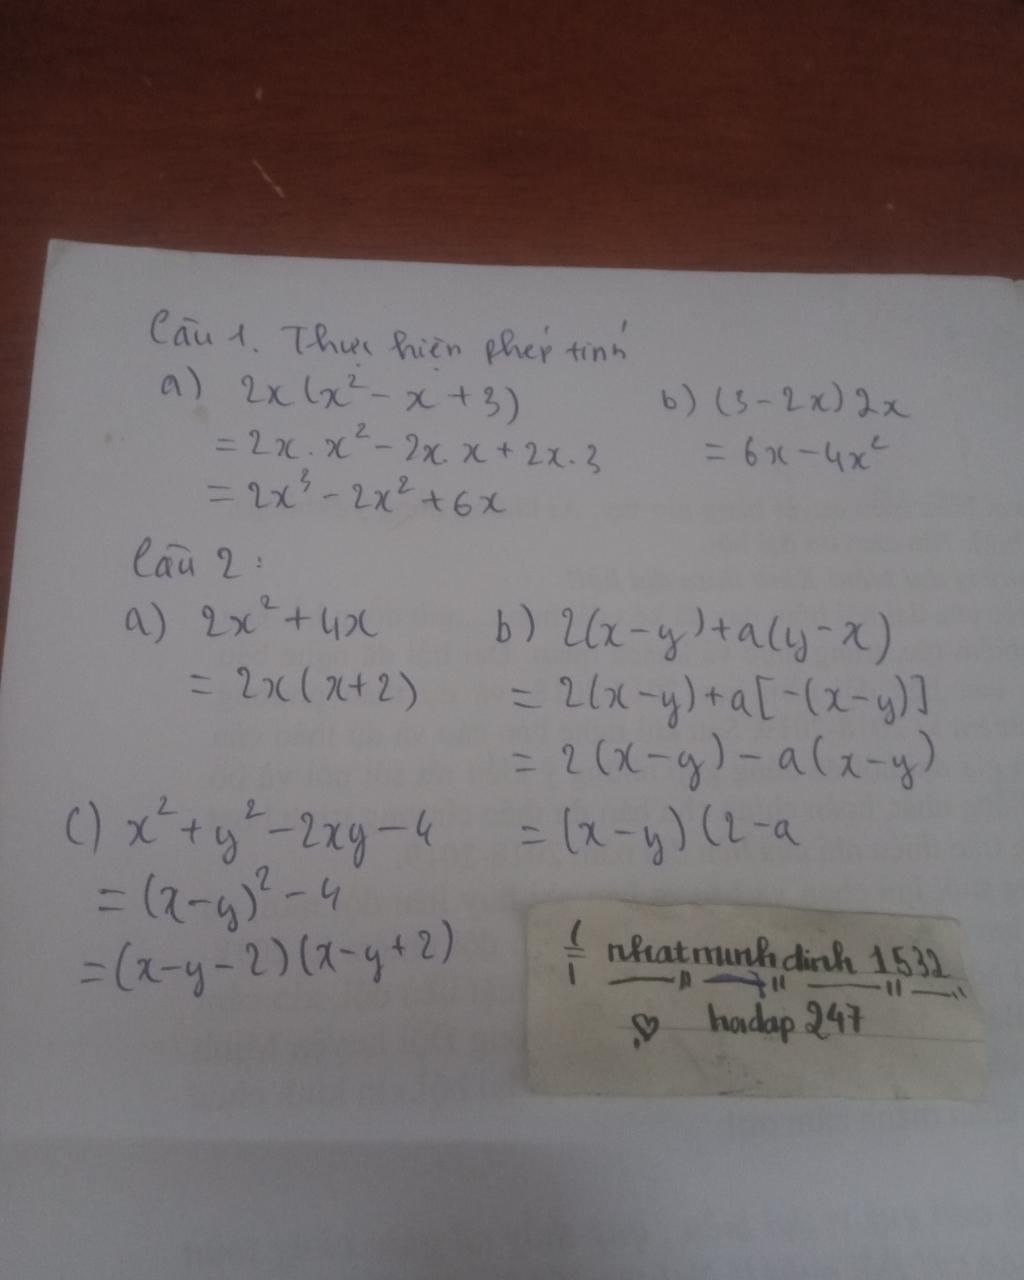 Câu 1. Thực hiện phép tính
a) 2x(x² - x + 3)
= 2x.x² - 2x.x + 2x.3
= 2x³ - 2x² + 6x
b) (3 - 2x)2x
= 6x - 4x²
Câu 2:
a) 2x² + 4x
= 2x(x+2)
b) 2(x-y)+a(y-x)
= 2(x-y)+a[-(x-y)]
= 2(x-y) - a(x-y)
= (x-y)(2-a
c) x² + y² - 2xy - 4
= (x-y)² - 4
= (x-y-2)(x-y+2)
nhatminhdinh 1532
hoidap 247